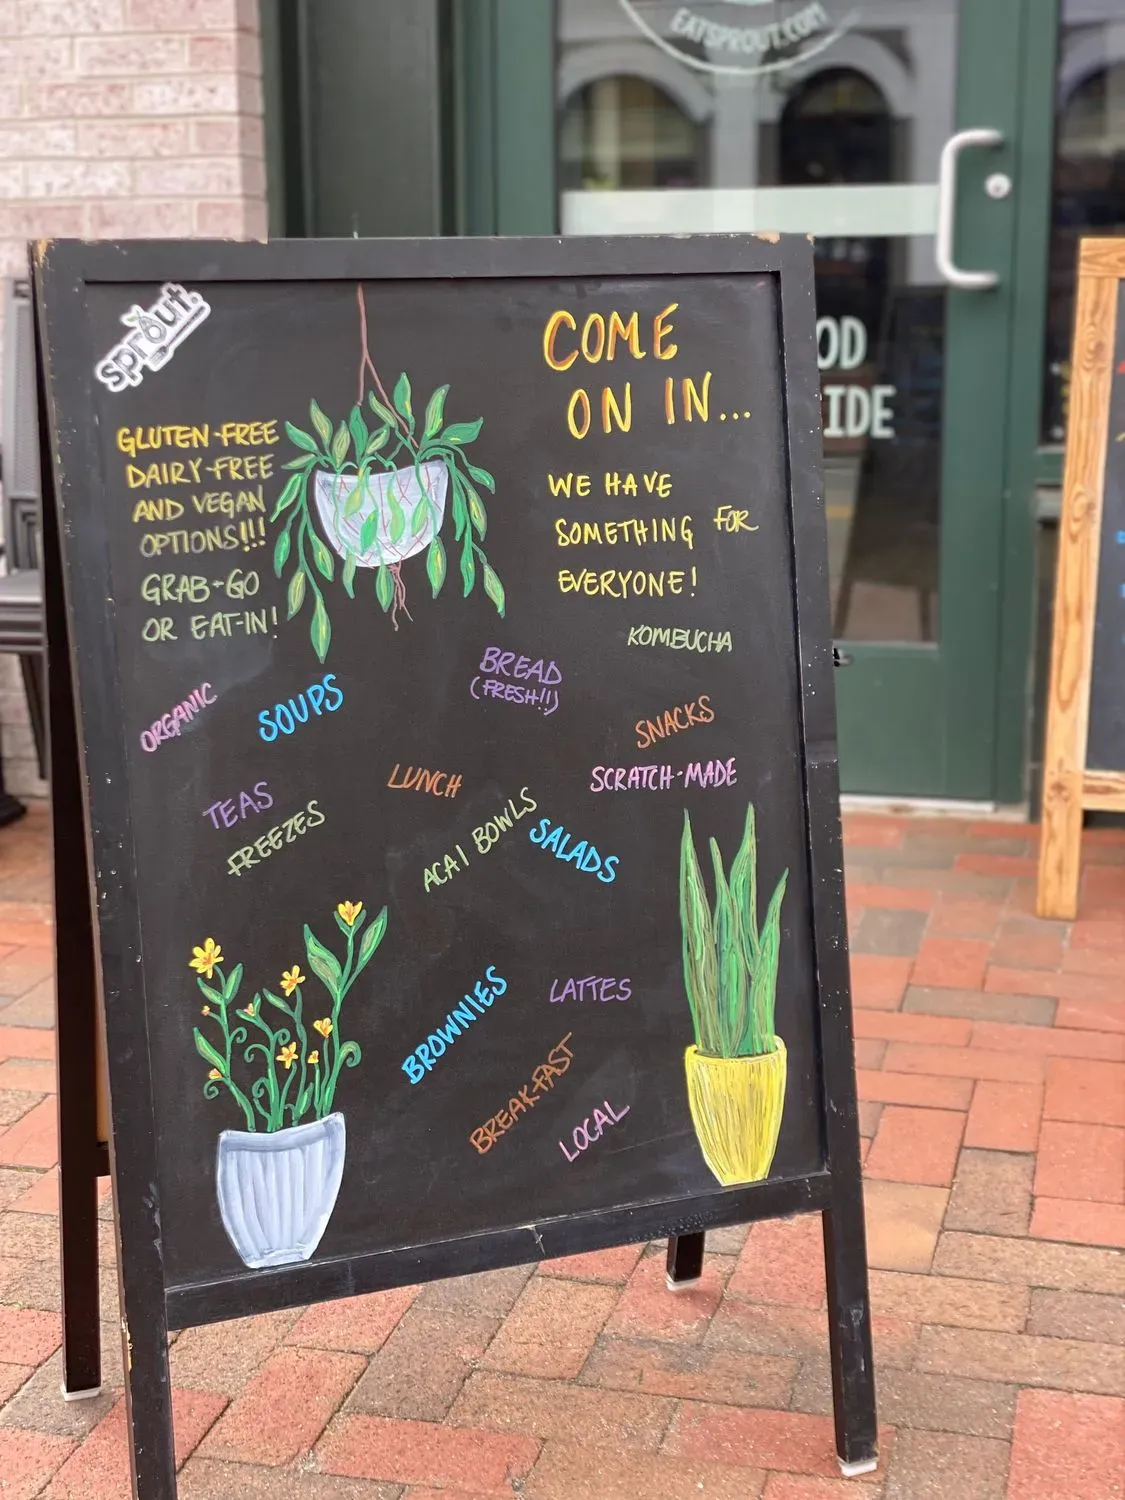 EATSPROUT.COM
sprout.
COME
ON IN...
GLUTEN-FREE
DAIRY-FREE
AND VEGAN
OPTIONS!!!
GRAB-GO
OR EAT-IN!
WE HAVE
SOMETHING FOR
EVERYONE!
KOMBUCHA
BREAD
(FRESH!!)
ORGANIC
SOUPS
SNACKS
LUNCH
SCRATCH-MADE
TEAS
FREEZES
ACAI BOWLS
SALADS
BROWNIES
LATTES
BREAKFAST
LOCAL
OD
IDE